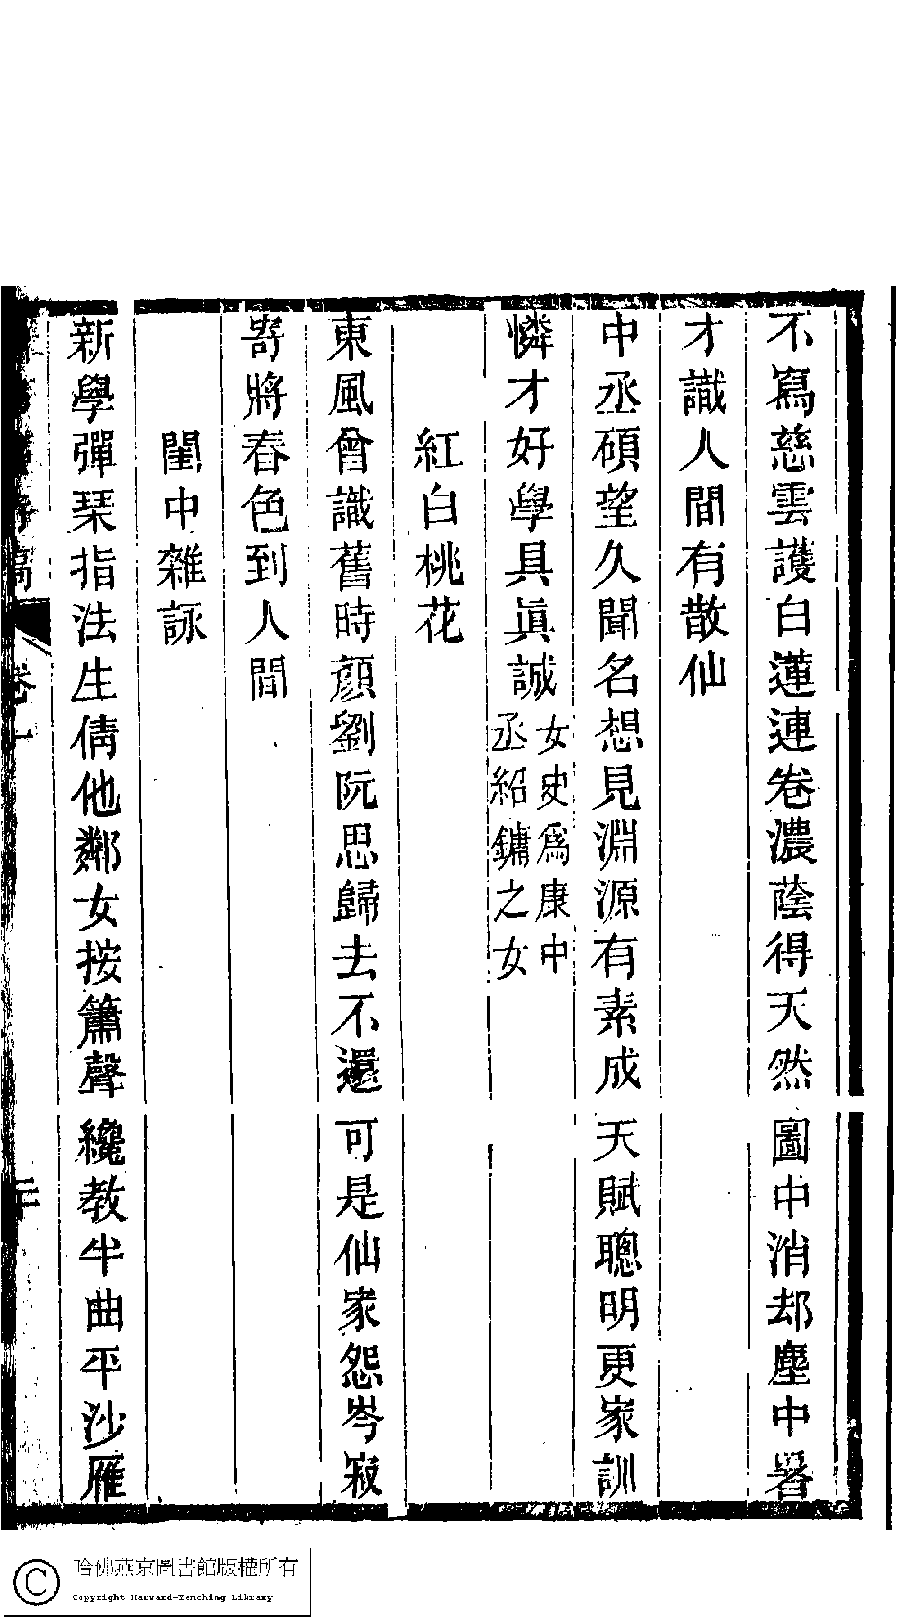 不寫慈雲護白蓮連卷濃蔭得天然圖中消却塵中暑
才識人間有散仙
中丞碩望久聞名想見淵源有素成天賦聰明更家訓
憐才好學具眞誠女史爲康中
丞紹鏞之女
紅白桃花
東風曾識舊時顏劉阮思歸去不還可是仙家怨岑寂
寄將春色到人間
閨中雜詠
新學彈琹指法生倩他鄰女按簫聲纔教半曲平沙雁
稿
卷十
二
哈佛燕京圖書館版權所有
Copyright Harvard-Yenching Library